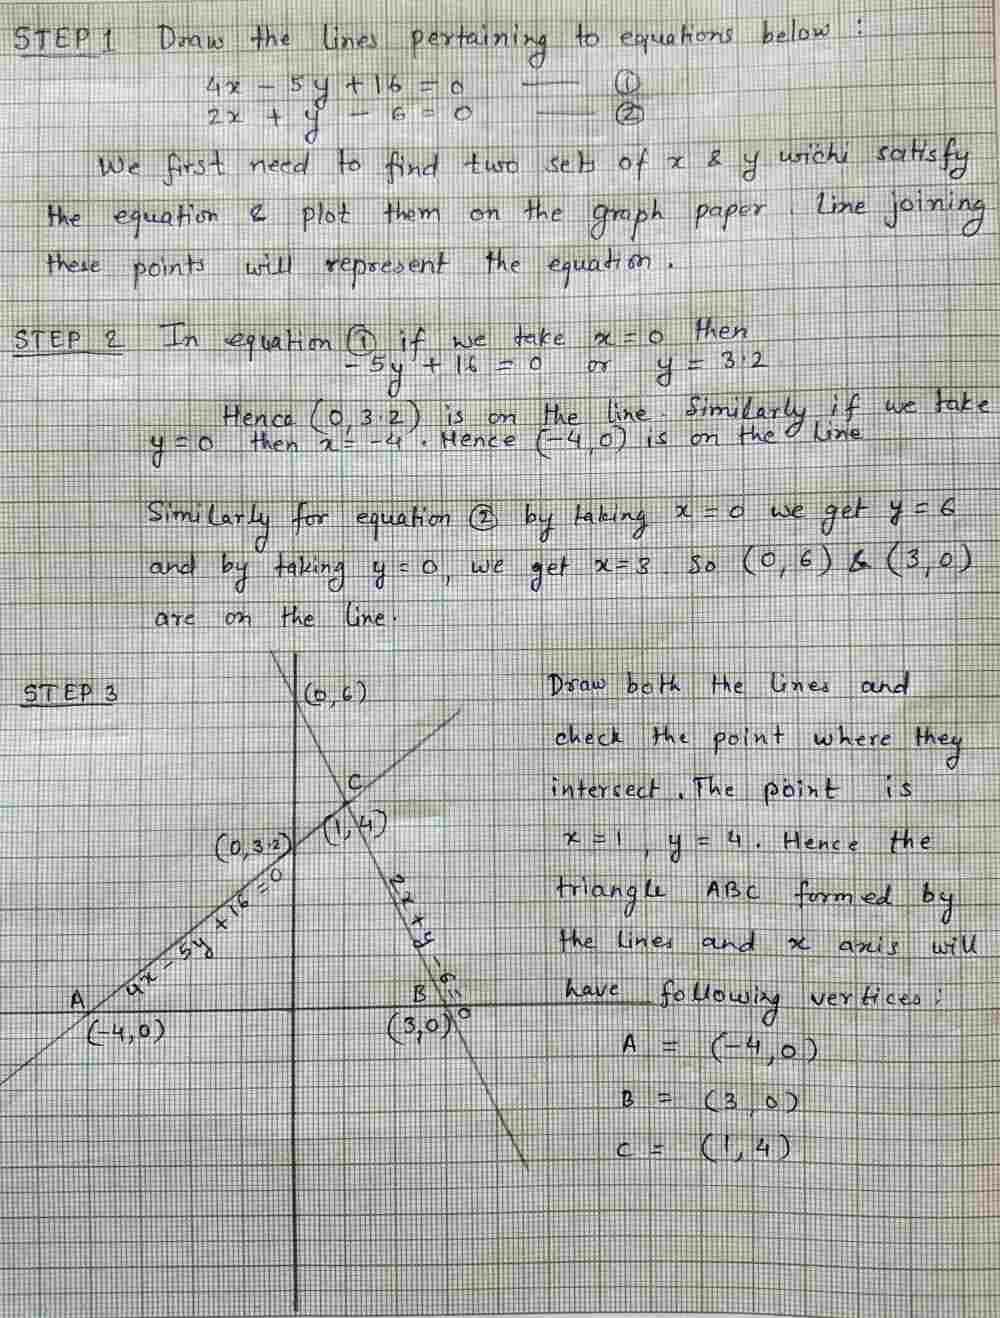 STEP 1 Draw the lines pertaining to equations below :
4x - 5y + 16 = 0 — ①
2x + y - 6 = 0 — ②
We first need to find two sets of x & y wichi satisfy
the equation & plot them on the graph paper. Line joining
these points will represent the equation.
STEP 2 In equation ① if we take x = 0 then
-5y + 16 = 0 or y = 3.2
Hence (0, 3.2) is on the line. Similarly if we take
y = 0 then x = -4. Hence (-4, 0) is on the line
Similarly for equation ② by taking x = 0 we get y = 6
and by taking y = 0, we get x = 3. So (0, 6) & (3, 0)
are on the line.
STEP 3
(0, 6)
C
(1, 4)
(0, 3.2)
4x - 5y + 16 = 0
2x + y - 6 = 0
A
(-4, 0)
B
(3, 0)
Draw both the lines and
check the point where they
intersect. The point is
x = 1, y = 4. Hence the
triangle ABC formed by
the lines and x axis will
have following vertices:
A = (-4, 0)
B = (3, 0)
C = (1, 4)